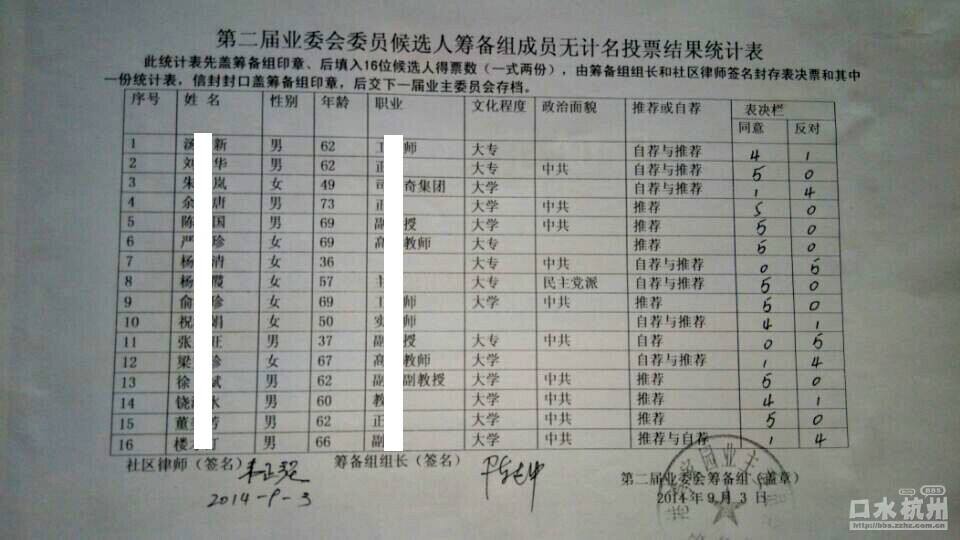 第二届业委会委员候选人筹备组成员无计名投票结果统计表
此统计表先盖筹备组印章、后填入16位候选人得票数（一式两份），由筹备组组长和社区律师签名封存表决票和其中
一份统计表，信封封口盖筹备组印章，后交下一届业主委员会存档。
序号 姓 名 性别 年龄 职业 文化程度 政治面貌 推荐或自荐 表决栏
同意 反对
1 汤 新 男 62 工 师 大专 自荐与推荐 4 1
2 刘 华 男 62 正 大专 中共 自荐与推荐 5 0
3 朱 岚 女 49 司 奇集团 大学 自荐与推荐 1 4
4 余 唐 男 73 正 大学 中共 推荐 5 0
5 陈 国 男 69 副 授 大学 中共 推荐 5 0
6 严 珍 女 69 高 教师 大专 推荐 5 0
7 杨 清 女 36 大专 中共 自荐与推荐 0 5
8 杨 霞 女 57 主 大专 民主党派 自荐与推荐 5 0
9 俞 珍 女 69 工 师 大学 中共 推荐 5 0
10 祝 娟 女 50 实 师 自荐与推荐 4 1
11 张 旺 男 37 副 授 大专 中共 自荐 0 5
12 梁 珍 女 67 高 教师 大学 自荐与推荐 1 4
13 徐 斌 男 62 副 副教授 大学 中共 推荐 5 0
14 饶 水 男 60 教 大学 中共 推荐 4 1
15 董 芳 男 62 正 大学 中共 推荐 5 0
16 楼 汀 男 66 副 大学 中共 推荐与自荐 1 4
社区律师（签名） 筹备组组长（签名） 第二届业委会筹备组（盖章）
2014-9-3 2014年9月3日
口水杭州
BBS
http://bbs.zzhz.com.cn